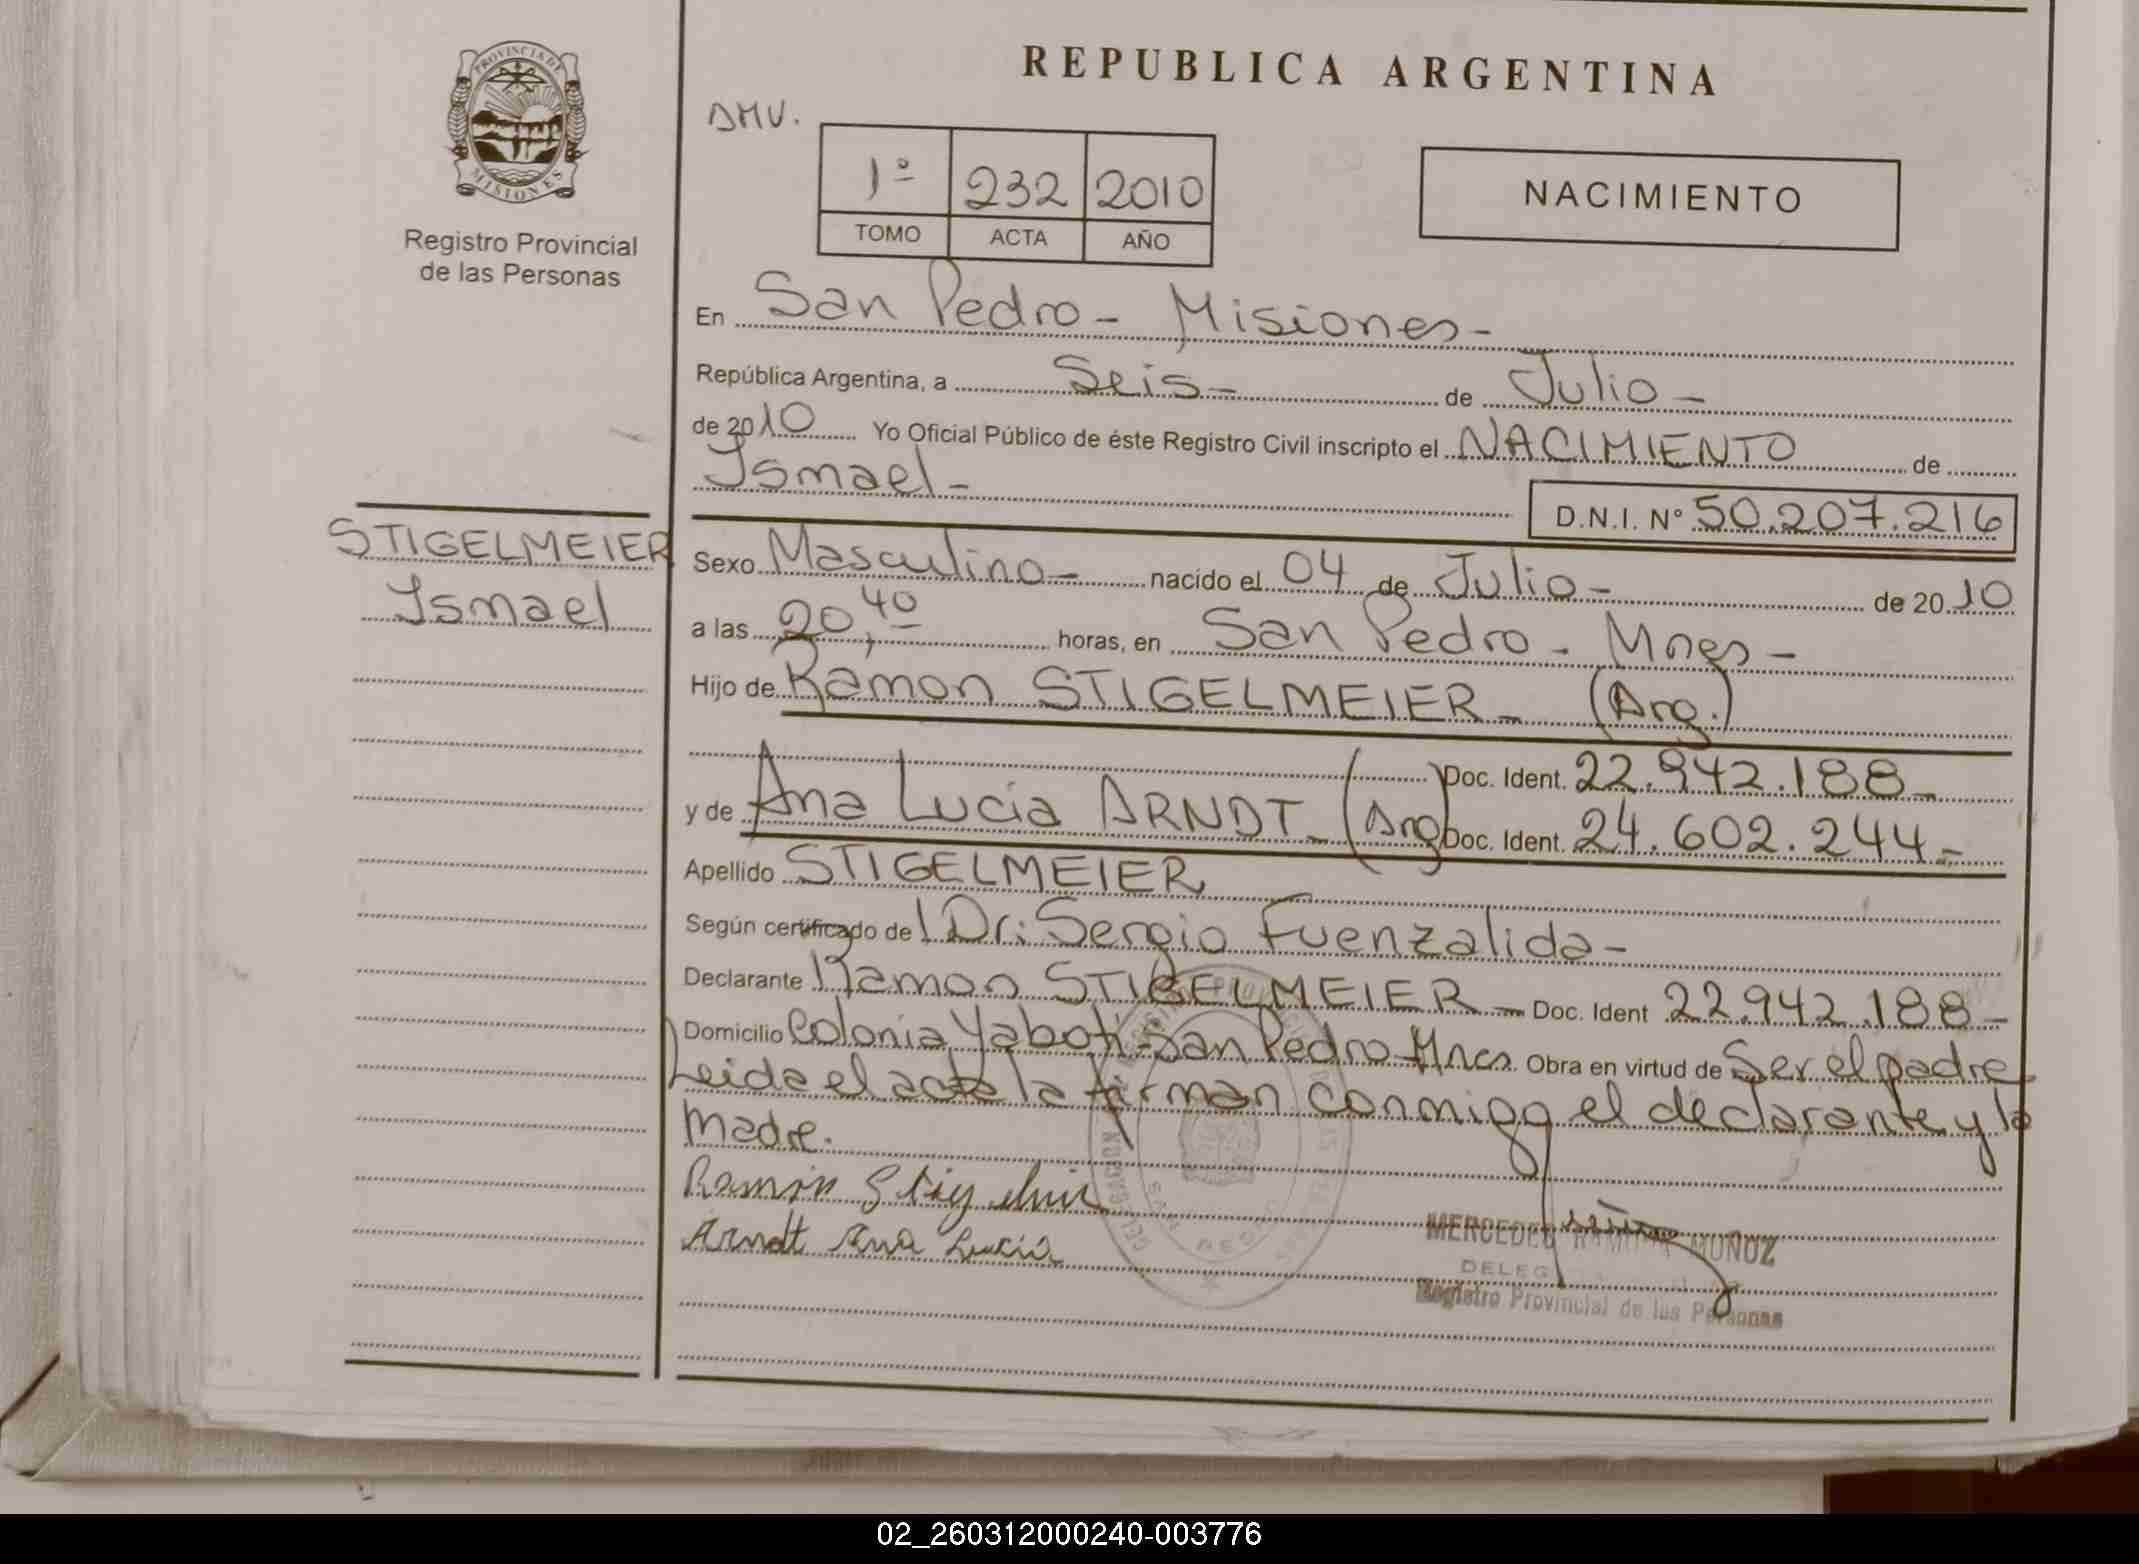 PROVINCIA DE
MISIONES
Registro Provincial
de las Personas
REPUBLICA ARGENTINA
DMV.
1º 232 2010
TOMO ACTA AÑO
NACIMIENTO
En San Pedro - Misiones -
República Argentina, a Seis - de Julio -
de 2010 Yo Oficial Público de éste Registro Civil inscripto el NACIMIENTO de
Ismael -
D.N.I. Nº 50.207.216
STIGELMEIER
Ismael
Sexo Masculino - nacido el 04 de Julio - de 2010
a las 20,40 horas, en San Pedro - Mnes -
Hijo de Ramon STIGELMEIER - (Arg.)
Doc. Ident. 22.942.188 -
y de Ana Lucia ARNDT - (Arg) Doc. Ident. 24.602.244 -
Apellido STIGELMEIER
Según certificado de Dr: Sergio Fuenzalida -
Declarante Ramon STIGELMEIER - Doc. Ident 22.942.188 -
Domicilio Colonia Yaboti - San Pedro - Mnes. Obra en virtud de Ser el padre
Leida el acta la firman conmigo el declarante y la
madre.
Ramón Stigelmeier
Arndt Ana Lucia
MERCEDES RAMONA MUÑOZ
Registro Provincial de las Personas
02_260312000240-003776